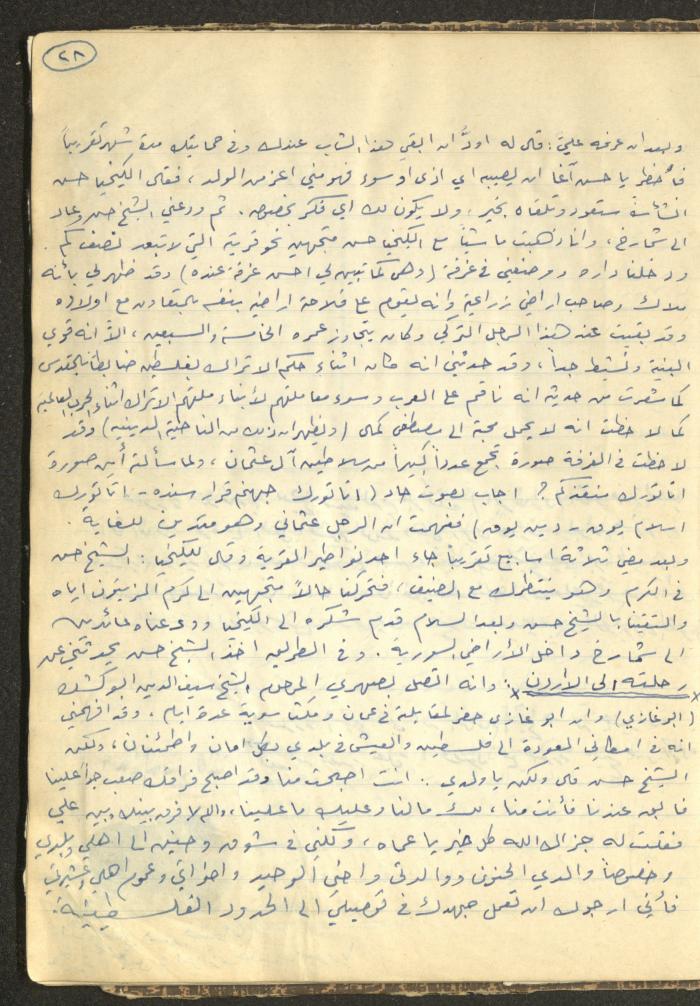 ٢٨
وبعد ان عرفه عليّ: قال له اودّ ان ابقي هذا الشاب عندك وفي حمايتك مدة شهر تقريباً
يا حسن آغا ان يصيبه اي اذى او سوء فهو مني اعز من الولد ، فقال الكيخيا حسن
ستعود وتلقاه بخير ، ولا يكون لك اي فكر بخصوصه . ثم ودعني الشيخ حسن وعاد
الى شمارخ ، وانا ذهبت ماشياً مع الكيخيا حسن متجهين نحو قريته التي لا تبعد نصف كم .
ودخلنا داره ووضعني في غرفة (وهي كما تبين لي احسن غرفة عنده) وقد ظهر لي بأنه
ملاك وصاحب اراضي زراعية وانه يقوم على فلاحة اراضيه بنفسه بالتعاون مع اولاده
وقد بقيت عند هذا الرجل التركي وكان يتجاوز عمره الخامسة والسبعين ، الاّ انه قوي
البنية ونشيط جداً ، وقد حدثني انه كان اثناء حكم الاتراك لفلسطين ضابطاً بالقدس
كما شعرت من حديثه انه ناقم على العرب وسوء معاملتهم لأبناء ملتهم الاتراك اثناء الحرب العالمية
كما لاحظت انه لا يحمل محبة الى مصطفى كمال (ويظهر ان ذلك من الناحية الدينية) وقد
لاحظت في الغرفة صورة تجمع عدداً كبيراً من سلاطين آل عثمان ، ولما سألته أين صورة
اتاتورك منقذكم ? اجاب بصوت حاد (اتاتورك جهنم قرار سنده - اتاتورك
اسلام يوق - دين يوق) ففهمت ان الرجل عثماني وهو متدين للغاية .
وبعد مضي ثلاثة اسابيع تقريباً جاء احد نواطير القرية وقال للكيخيا : الشيخ حسن
في الكرم وهو ينتظرك مع الضيف ، فتحركنا حالاً متجهين الى كرم الزيتون اياه
والتقينا بالشيخ حسن وبعد السلام قدم شكره الى الكيخيا وودعناه عائدين
الى شمارخ داخل الأراضي السورية . وفي الطريق اخذ الشيخ حسن يحدثني عن
رحلته الى الاردن : وانه اتصل بصهري المرحوم الشيخ سيف الدين ابو كشك
(ابو غازي) وان ابو غازي حضر لمقابلته في عمان ومكثا سوية عدة ايام ، وقد افهمني
انه في امكاني العودة الى فلسطين والعيش في بلدي بكل امان واطمئنان ، ولكن
الشيخ حسن قال ولكن يا ولدي : انت اصبحت منا وقد اصبح فراقك صعب جداً علينا
فابق عندنا فأنت منا ، لك ما لنا وعليك ما علينا ، والله لا فرق بينك وبين علي
فقلت له جزاك الله كل خير يا عماه ، ولكنني في شوق وحنين الى اهلي وبلدي
وخصوصاً والدي الحنون ووالدتي واخي الوحيد واخواتي وعموم اهلي وعشيرتي
فأني ارجوك ان تعمل جهدك في توصيلي الى الحدود الفلسطينية .